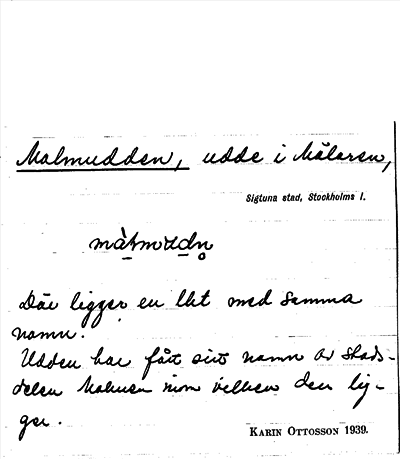 Malmudden, udde i Mälaren,
Sigtuna stad, Stockholms l.
màlmuddn̥
Där ligger en lht med samma
namn.
Udden har fått sitt namn av stads-
delen Malmen inom vilken den lig-
ger.
KARIN OTTOSSON 1939.